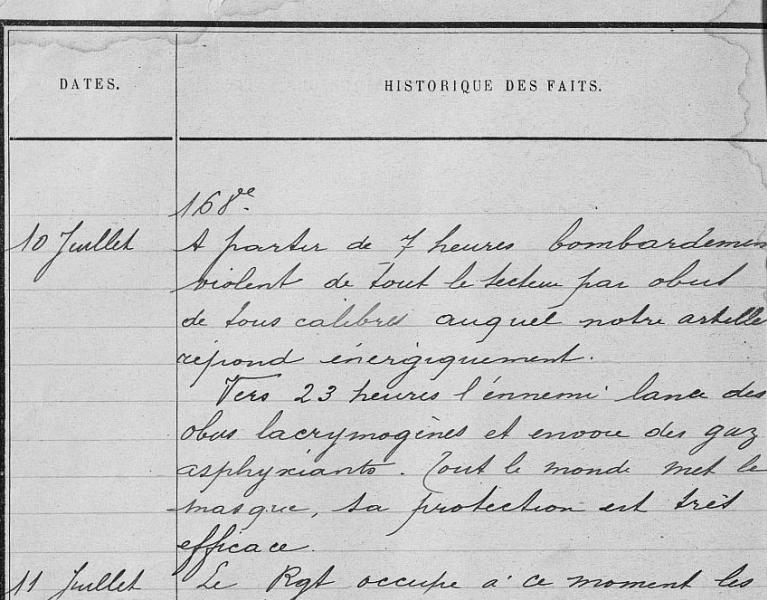 DATES.
HISTORIQUE DES FAITS.
168e.
10 Juillet A partir de 7 heures bombardemen
violent de tout le secteur par obus
de tous calibres auquel notre artille
répond énergiquement.
Vers 23 heures l'énnemi lance des
obus lacrymogènes et envoie des gaz
asphyxiants. Tout le monde met le
masque, sa protection est très
efficace.
11 Juillet Le Rgt occupe à ce moment les